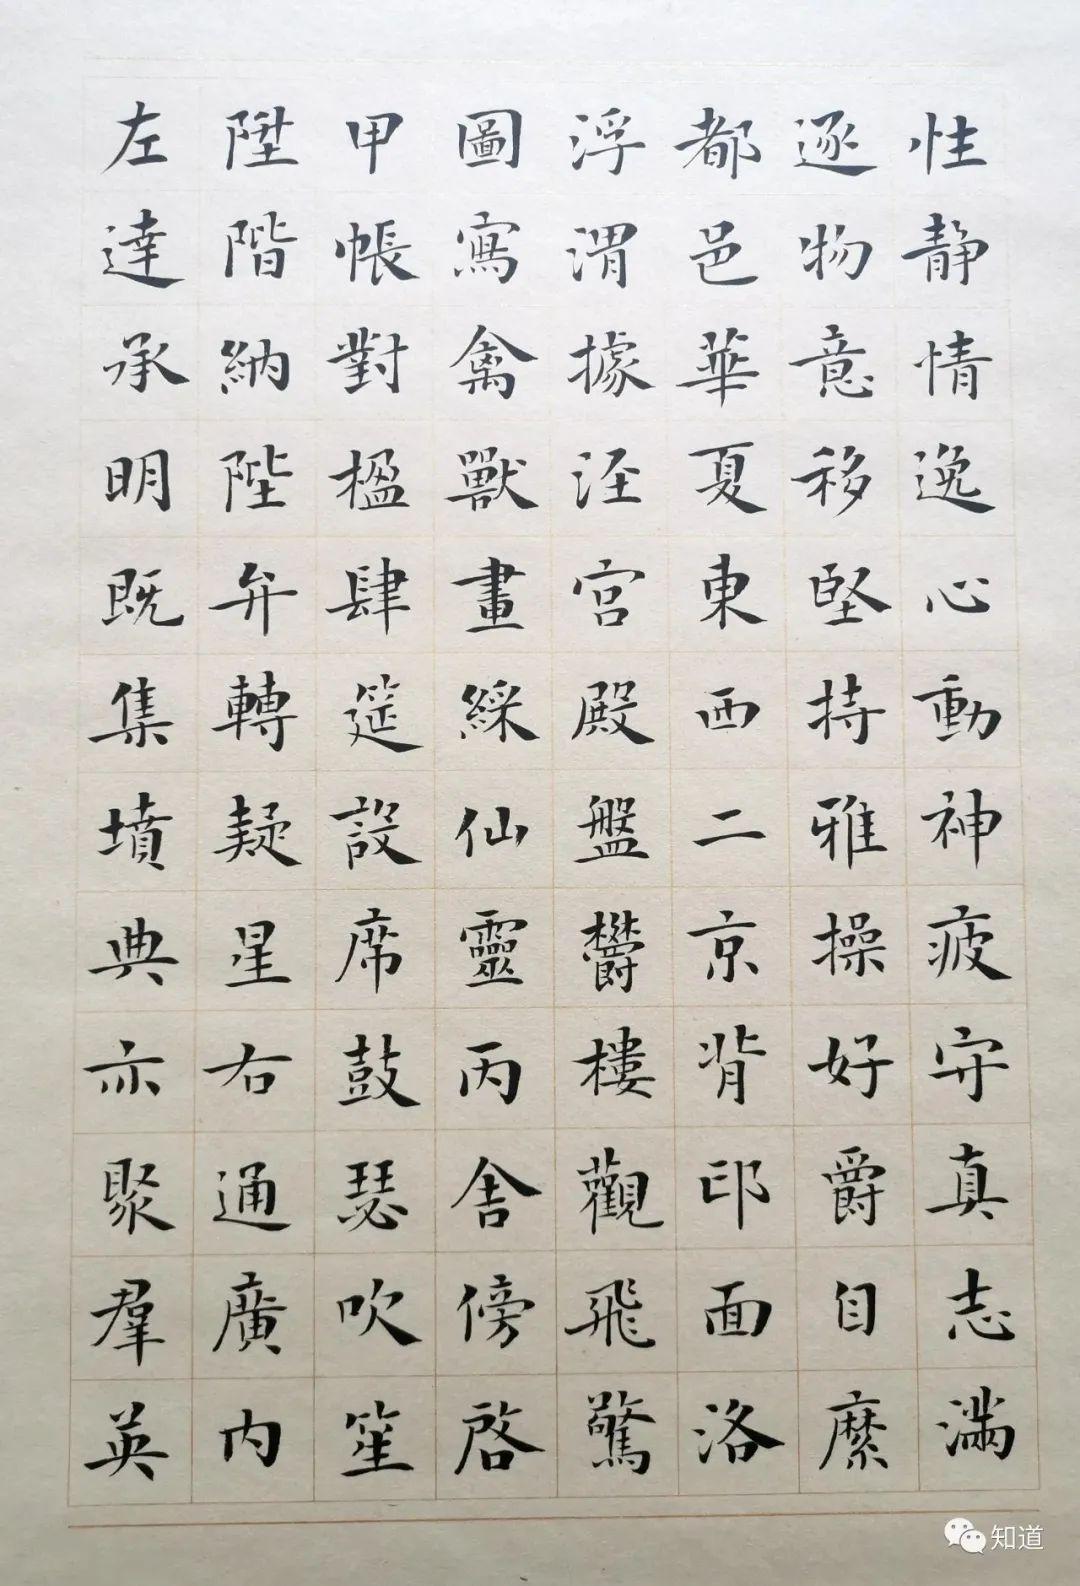 性靜情逸心動神疲守真志滿
逐物意移堅持雅操好爵自縻
都邑華夏東西二京背邙面洛
浮渭據涇宮殿盤欝樓觀飛驚
圖寫禽獸畫綵仙靈丙舎傍啓
甲帳對楹肆筵設席鼓瑟吹笙
陞階納陛弁轉疑星右通廣內
左達承明既集墳典亦聚羣英
知道